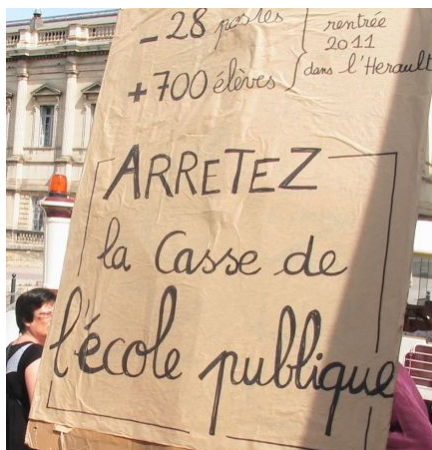 - 28 postes
+ 700 élèves
rentrée
2011
dans l'Herault
ARRETEZ
la Casse de
l'école publique